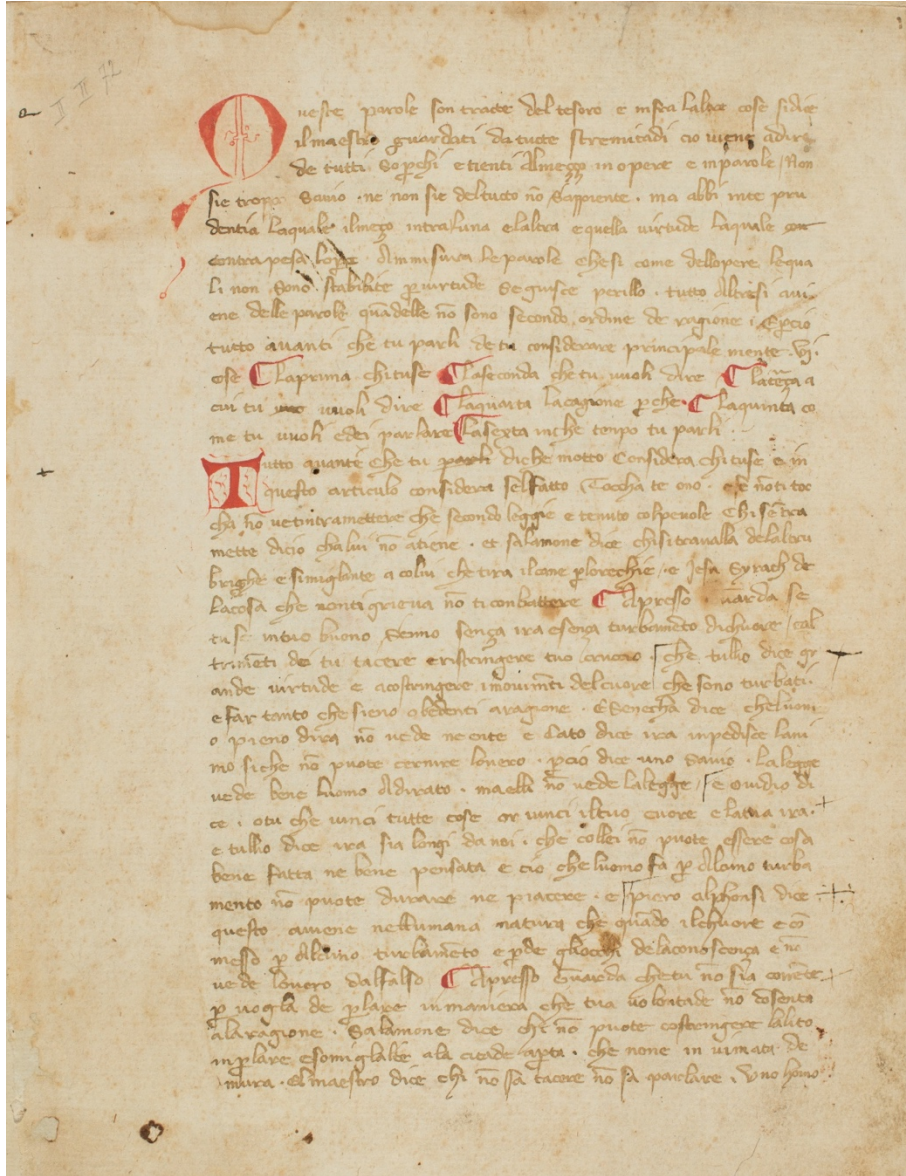 II III 72
Queste parole son tratte del tesoro e infra laltre cose si dice
il maestro guardati da tutte stremitadi cio viene adire
de tutti soperchi e tienti almezo in opere e in parole Non
sie tropo savio · ne non sie deltutto nō sappiente · ma abbi inte pru
dentia laquale ilmezo intraluna elaltra e quella virtude laquale
contrapesa Ammisura le parole che si come dellopere lequa
li non sono stabilite p virtude tutto altresi avi
ene delle parole q̄ndelle nō sono secondo ordine de ragione · Epcio
tutto avanti che tu parli de tu considerare principale mente · vj ·
ose ¶ la prima chi tuse ¶ la seconda che tu vuoli dire ¶ la terza a
cui tu vuoli dire ¶ la quarta la cagione p che · ¶ la quinta co
me tu vuoli e dei parlare ¶ la sexta inche tenpo tu parli ·
Tutto avante che tu parli diche motto considera chi tuse e in
questo articulo considera selfatto toccha te ono · e se nōti toc
cha nō ve tintramettere che secondo leggie e tenuto colpevole chi sētra
mette dicio chalui nō atiene · et salamone dice chi si travalla delaltru
brighe e simiglante a colui che tira il cane p lorechie · e Jesu Syrach de
lacosa che nonti grieva nō ti conbattere ¶ Apresso · Guarda se
tu se intuo buono senno senza ira e senza turbamēto dichuore / cal
trimēti dei tu tacere e ristringere tuo cruccio che tullio dice gr
ande virtude e a costringere i movimēti del cuore che sono turbati ·
e far tanto che sieno obedienti a ragione · E Senecha dice cheluom
o pieno dira nō vede neente e Cato dice ira inpedisce lani
mo si che nō puote cernire lovero · pcio dice uno savio · la legge
vede bene luomo adirato · ma elli nō vede la legge / e ovidio di
ce · otu che vinci tutte cose or vinci iltuo cuore e latua ira ·
e tullio dice ira sia longi da noi · che collei nō puote essere cosa
bene fatta ne bene pensata e cio che luomo fa p alcuno turba
mento nō puote durare ne piacere · e piero alphonsi dice
questo aviene nellumana natura che quādo ilchuore e cō
messo p alcuno turbamēto e pde gliocchi delaconoscenza e nō
vede lovero dalfalso ¶ Apresso Guarda che tu nō sia
p vogla de plare in maniera che tua volontade nō cōsenta
ala ragione · Salamone dice chi nō puote costringere lalito
in plare e ala citade apta · che none
mura · el maestro dice chi nō sa tacere nō sa parlare · Uno homo